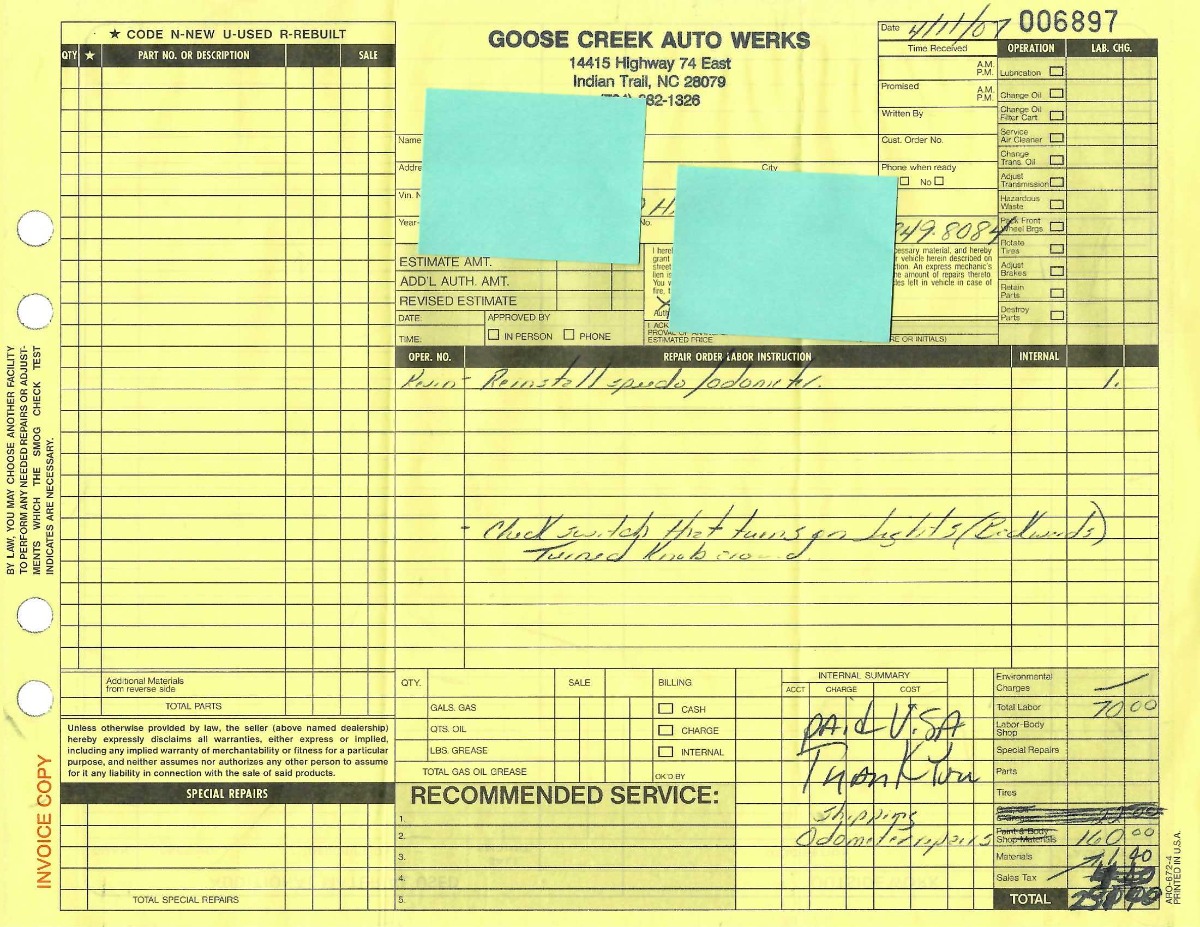 ★ CODE N-NEW U-USED R-REBUILT
QTY ★ PART NO. OR DESCRIPTION SALE
GOOSE CREEK AUTO WERKS
14415 Highway 74 East
Indian Trail, NC 28079
82-1326
Date 4/11/07 006897
Time Received
A.M.
P.M.
Promised
A.M.
P.M.
Written By
Cust. Order No.
Phone when ready
No
OPERATION LAB. CHG.
Lubrication
Change Oil
Change Oil
Filter Cart
Service
Air Cleaner
Change
Trans. Oil
Adjust
Transmission
Hazardous
Waste
Pack Front
Wheel Brgs.
Rotate
Tires
Adjust
Brakes
Retain
Parts
Destroy
Parts
Name
Addre
City
Vin. N
Year-
No.
849.8084
ESTIMATE AMT.
ADD'L AUTH. AMT.
REVISED ESTIMATE
DATE: APPROVED BY
TIME: IN PERSON PHONE
I herel
grant
street
lien is
You v
fire, t
X
Auth
cessary material, and hereby
r vehicle herein described on
ction. An express mechanic's
he amount of repairs thereto
les left in vehicle in case of
I. ACK
PROVAL OF
ESTIMATED PRICE
RE OR INITIALS)
OPER. NO. REPAIR ORDER LABOR INSTRUCTION INTERNAL
Reinstall speedo/odometer. 1.
- Check switch that turns on lights (Backwards)
Turned Knob
BY LAW, YOU MAY CHOOSE ANOTHER FACILITY
TO PERFORM ANY NEEDED REPAIRS OR ADJUST-
MENTS WHICH THE SMOG CHECK TEST
INDICATES ARE NECESSARY.
Additional Materials
from reverse side
TOTAL PARTS
Unless otherwise provided by law, the seller (above named dealership)
hereby expressly disclaims all warranties, either express or implied,
including any implied warranty of merchantability or fitness for a particular
purpose, and neither assumes nor authorizes any other person to assume
for it any liability in connection with the sale of said products.
SPECIAL REPAIRS
TOTAL SPECIAL REPAIRS
INVOICE COPY
QTY. SALE BILLING
GALS. GAS CASH
QTS. OIL CHARGE
LBS. GREASE INTERNAL
TOTAL GAS OIL GREASE OK'D BY
RECOMMENDED SERVICE:
1.
2.
3.
4.
5.
INTERNAL SUMMARY
ACCT CHARGE COST
PAID VISA
THANK You
Shipping
Odometer repairs
Environmental
Charges
Total Labor 70.00
Labor-Body
Shop
Special Repairs
Parts
Tires
Paint & Body
Shop Materials 160.00
Materials
Sales Tax
TOTAL
ARO-672-4
PRINTED IN U.S.A.